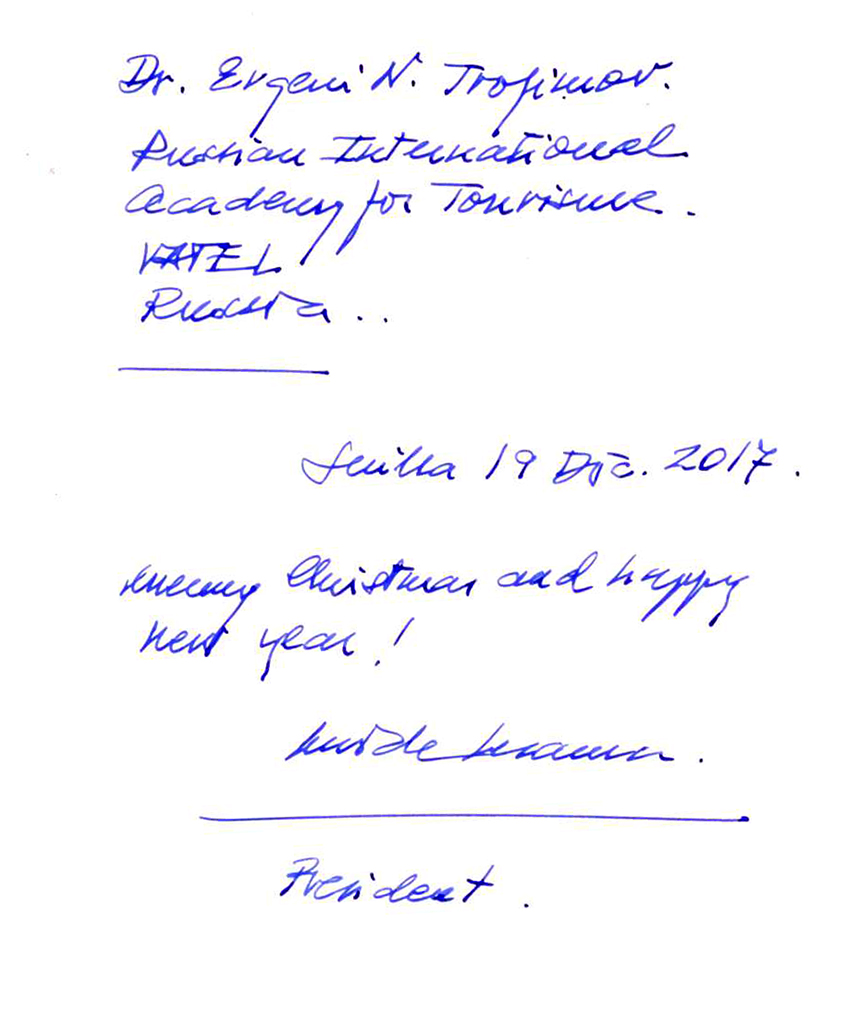 Dr. Evgeni N. Trofimov.
Russian International
Academy for Tourisme.
VATEL
Russia..
Sevilla 19 Dic. 2017.
merry Christmas and happy
new year!
President.